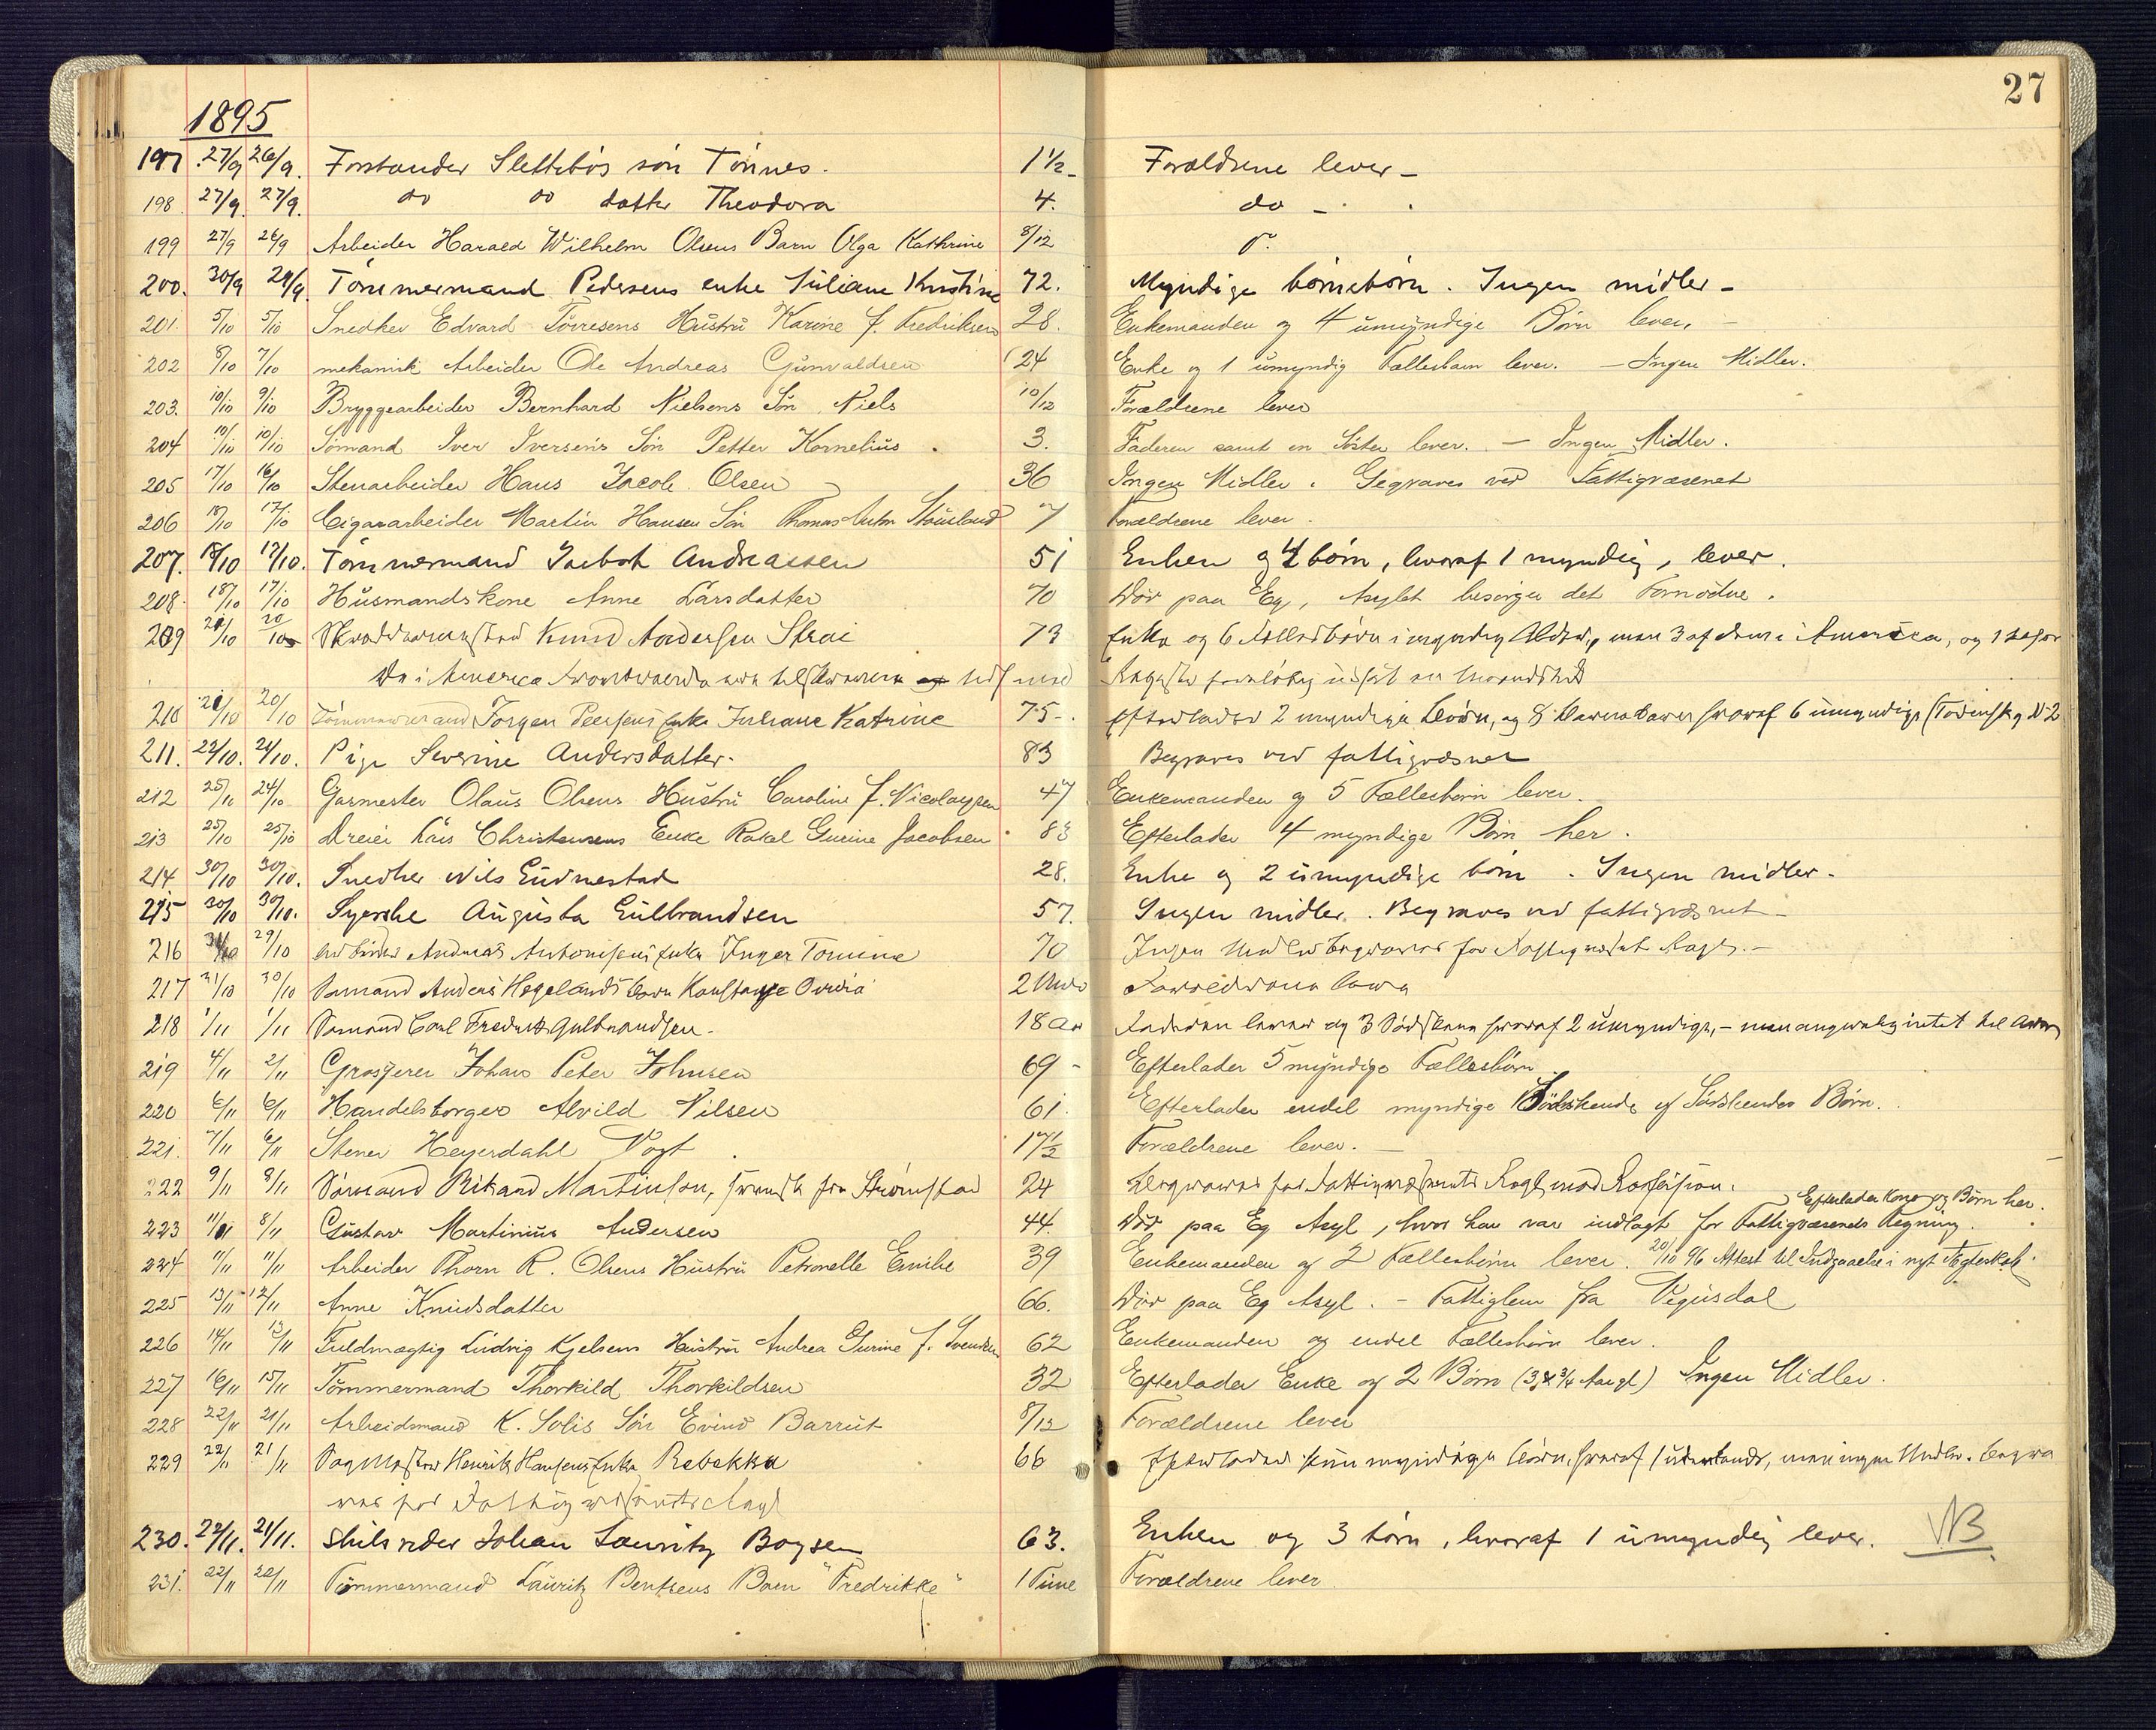 27
1895
197 27/9 26/9. Forstander Slettebøs søn Tönnes. 1 1/2 Forældrene lever
198. 27/9. 27/9. do do datter Theodora 4. do
199 27/9 26/9 Arbeider Harald Wilhelm Olsens Barn Olga Kathrine 8/12
200. 30/9 29/9. Tömmermand Pedersens enke Juliane Kristine 72. Myndige börnebörn. Ingen midler
201. 5/10 5/10 Snedker Edvard Törresens Hustru Karine f. Fredriksen 28. Enkemanden og 4 umyndige Börn lever.
202 8/10 7/10 mekanisk Arbeider Ole Andreas Gunvaldsen 24 Enke og 1 umyndig Fællesbarn lever. – Ingen Midler.
203. 10/10 9/10 Bryggearbeider Bernhard Nielsens Sön Niels 10/12 Forældrene lever
204 10/10 10/10 Sömand Iver Iversens Sön Petter Kornelius 3. Faderen samt en Söster lever. – Ingen Midler.
205 17/10 16/10 Stenarbeider Hans Jacob Olsen 36 Ingen Midler. Begraves ved Fattigvæsenet
206 18/10 17/10 Cigararbeider Martin Hansen Sön Thomas Anton 7 Forældrene lever.
207. 18/10 17/10. Tömmermand Jacob Andreassen 51 Enken og 4 börn, hvoraf 1 myndig, lever.
208. 18/10 17/10 Husmandskone Anne Larsdatter 70 Död paa Eg, Asylet besörger det Fornödne.
209 21/10 20/10 Knud Andersen Strai 73 Enke og 6 Fællesbörn i myndig Alder, men 3 af dem i America, og 1
De i America
210 21/10 20/10 Tömmermand Jörgen Peersens Enke Juliane Katrine 75 Efterlader 2 myndige Börn, og 8 Barnebörn hvoraf 6 umyndige
211. 22/10. 21/10. Pige Severine Andersdatter. 83 Begraves ved fattigvæsnet
212 25/10 24/10 Gasmester Olaus Olsens Hustru Caroline f. Nicolaysen 47 Enkemanden og 5 Fællesbörn lever.
213 25/10 25/10 Dreier Lars Christensens Enke Rakel Gurine Jacobsen 83 Efterlader 4 myndige Börn her.
214 30/10 30/10. Snedker Nils Eudnestad 28. Enke og 2 umyndige börn. Ingen midler.
215 30/10 30/10. Syerske Augusta Gulbrandsen 57. Ingen midler. Begraves ved fattigvæsnet
216 31/10 29/10 Andreas Antonisens Enke Inger Tomine 70 Ingen Midler begraves for Fattigvæsnets Regn.
217 31/10 30/10 Sömand Anders Hegelands Barn Konstanse Ovidia 2 Forældrene leve
218 1/11 1/11 Sömand Carl Fredrik Gulbrandsen. 18 Aar Faderen lever og 3 Södskene hvoraf 2 umyndige, – men angivelig intet til Arv
219 4/11 2/11 Grosserer Johan Peter Johnsen 69 Efterlader 5 myndige Fællesbörn
220 6/11 6/11 Handelsborger Alvild Nilsen 61. Efterlader endel myndige Södskende og Södskendes Börn.
221. 7/11 6/11 Stener Heyerdahl Vogt 17 1/2 Forældrene lever.
222 9/11 8/11 Sömand Rikard Martinson, svensk fra Strömstad 24 Begraves for Fattigvæsenets Regn mod Refusion.
Efterlader Kone og Börn her.
223 11/11 8/11 Gustav Martinius Andersen 44. Död paa Eg Asyl, hvor han var indlagt for Fattigvæsenets Regning.
224 11/11 11/11 Arbeider Thorn R. Olsens Hustru Petronelle Emilie 39 Enkemanden og 2 Fællesbörn lever. 20/10 96 Attest til Indgaaelse i nyt Ægteskab.
225 13/11 12/11 Anne Knudsdatter 66. Död paa Eg Asyl. – Fattiglem fra Vegusdal
226 14/11 13/11 Fuldmægtig Ludvig Kjelsens Hustru Andrea Gurine f. Svendsen 62 Enkemanden og endel Fællesbörn lever.
227 16/11 15/11 Tömmermand Thorkild Thorkildsen 32 Efterlader Enke og 2 Börn (3 & 3/4 Aar gl) Ingen Midler.
228 22/11 21/11 Arbeidsmand K. Solis Sön Evind Barrut 8/12 Forældrene lever
229 22/11 21/11 Henrik Hansens Enke Rebekka 66 Efterlader kun myndige Börn, hvoraf 1 udenlands, men ingen Midler. Begra
ves for Fattigvæsenets Regn
230. 22/11. 21/11. Skibsreder Johan Lauritz Boysen 63. Enken og 3 börn, hvoraf 1 umyndig lever. NB
231. 22/11 22/11 Tömmermand Lauritz Bentsens Barn "Fredrikke" 1 Time Forældrene lever.